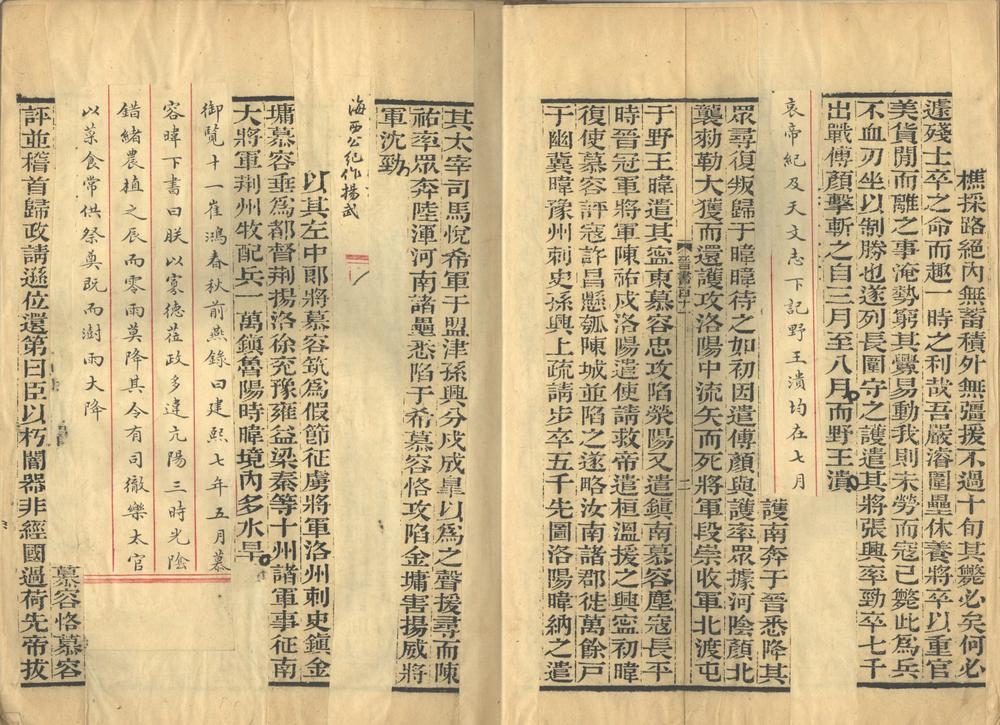 樵採路絕內無蓄積外無彊援不過十旬其斃必矣何必
遽殘士卒之命而趣一時之利哉吾嚴濬圍壘休養將卒以重官
美貨閒而離之事淹勢窮其釁易動我則未勞而寇已斃此爲兵
不血刃坐以制勝也遂列長圍守之護遣其將張興率勁卒七千
出戰傅顏擊斬之自三月至八月而野王潰
哀帝紀及天文志下記野王潰均在七月
護南奔于晉悉降其
眾尋復叛歸于暐暐待之如初因遣傅顏與護率眾據河陰顏北
襲勑勒大獲而還護攻洛陽中流矢而死將軍段崇收軍北渡屯
于野王暐遣其寧東慕容忠攻陷滎陽又遣鎮南慕容塵寇長平
時晉冠軍將軍陳祐戍洛陽遣使請救帝遣桓溫援之興寧初暐
復使慕容評寇許昌懸瓠陳城並陷之遂略汝南諸郡徙萬餘戶
于幽冀暐豫州刺史孫興上疏請步卒五千先圖洛陽暐納之遣
其太宰司馬悅希軍于盟津孫興分戍成臯以爲之聲援尋而陳
祐率眾奔陸渾河南諸壘悉陷于希慕容恪攻陷金墉害揚威將
軍沈勁
海西公紀作揚武
以其左中郎將慕容筑爲假節征虜將軍洛州刺史鎮金
墉慕容垂爲都督荆揚洛徐兖豫雍益梁秦等十州諸軍事征南
大將軍荆州牧配兵一萬鎮魯陽時暐境內多水旱
御覽十一崔鴻春秋前燕錄曰建熙七年五月慕
容暐下書曰朕以寡德莅政多違亢陽三時光陰
錯緒農植之辰而零雨莫降其令有司徹樂太官
以菜食常供祭奠既而澍雨大降
慕容恪慕容
評並稽首歸政請遜位還第曰臣以朽闇器非經國過荷先帝拔